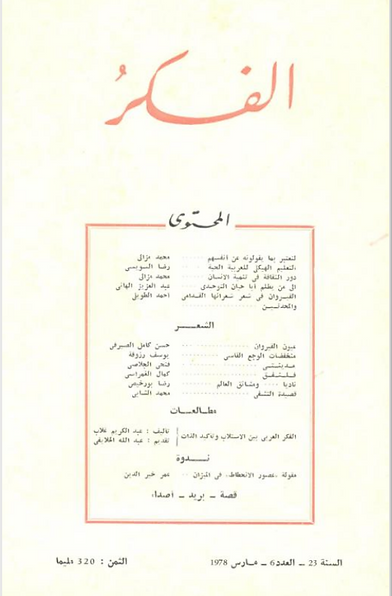 الفكر
المحتوى
لنعتبر بما يقولونه عن أنفسهم ...... محمد مزالي
التعليم الهيكلي للعربية الحية ...... رضا السويسي
دور الثقافة في تنمية الانسان ...... محمد مزالي
الى من يظلم أبا حيان التوحيدي ...... عبد العزيز الهاني
القيروان في شعر شعرائها القدامى ...... أحمد الطويل
والمحدثين
الشعر
عيون القيروان ...... حسن كامل الصيرفي
منخفضات الوجع القاسي ...... يوسف رزوقة
مدينتي ...... فتحي
فلتشفق ...... كمال
ناديا ...... ومشانق العالم ...... رضا بورخيص
قصيدة التشفي ...... محمد الشابي
مطالعات
الفكر العربي بين الاستلاب وتأكيد الذات
تأليف : عبد الكريم غلاب
تقديم : عبد الله
ندوة
مقولة «عصور الانحطاط» في الميزان ... عمر خير الدين
قصة - بريد - أصداء
السنة 23 - العدد 6 - مارس 1978
الثمن : 320 مليما